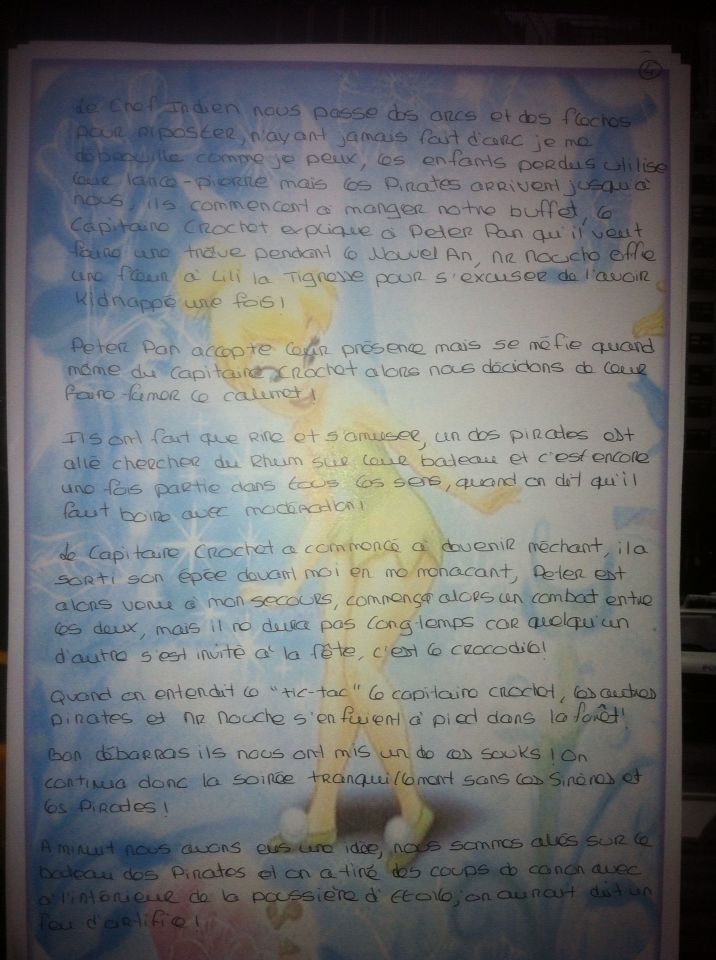 4
Le Chef Indien nous passe des arcs et des flèches
pour riposter, n'ayant jamais fait d'arc je me
débrouille comme je peux, les enfants perdus utilise
leur lance-pierre mais les Pirates arrivent jusqu'à
nous, ils commencent à manger notre buffet, le
Capitaine Crochet explique à Peter Pan qu'il veut
faire une trève pendant le Nouvel An, Mr Mouche offre
une fleur à Lili la Tigresse pour s'excuser de l'avoir
Kidnappé une fois!
Peter Pan accepte leur présence mais se méfie quand
même du Capitaine Crochet alors nous décidons de leur
faire fumer le calumet!
Ils ont fait que rire et s'amuser, un des pirates est
allé chercher du Rhum sur leur bateau et c'est encore
une fois partie dans tous les sens, quand on dit qu'il
faut boire avec modération!
Le Capitaine Crochet a commencé à devenir méchant, il a
sorti son épée devant moi en me menacant, Peter est
alors venu à mon secours, commença alors un combat entre
les deux, mais il ne dura pas long-temps car quelqu'un
d'autre s'est invité à la fête, c'est le crocodile!
Quand on entendit le "tic-tac" le capitaine crochet, les autres
pirates et Mr Mouche s'enfuient à pied dans la forêt!
Bon débarras ils nous ont mis un de ces souks! On
continua donc la soirée tranquillement sans les Sirènes et
les Pirates!
A minuit nous avons eus une idée, nous sommes allés sur le
bateau des Pirates et on a tiré des coups de canon avec
à l'intérieur de la poussière d'étoile, on aurait dit un
feu d'artifice!